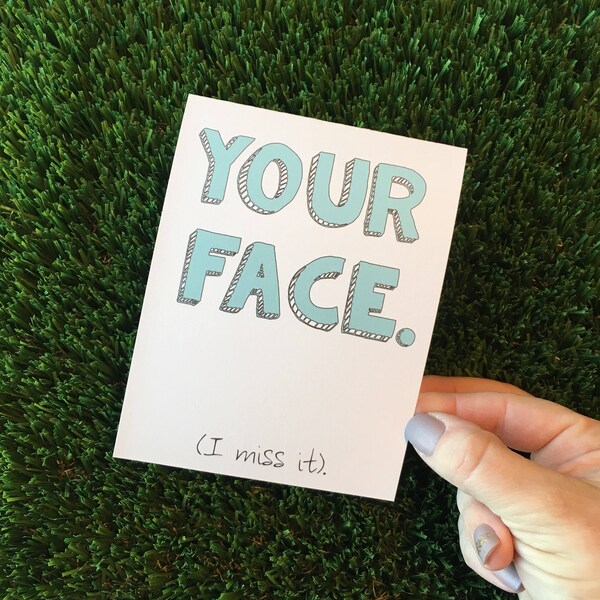 YOUR
FACE.
(I miss it).